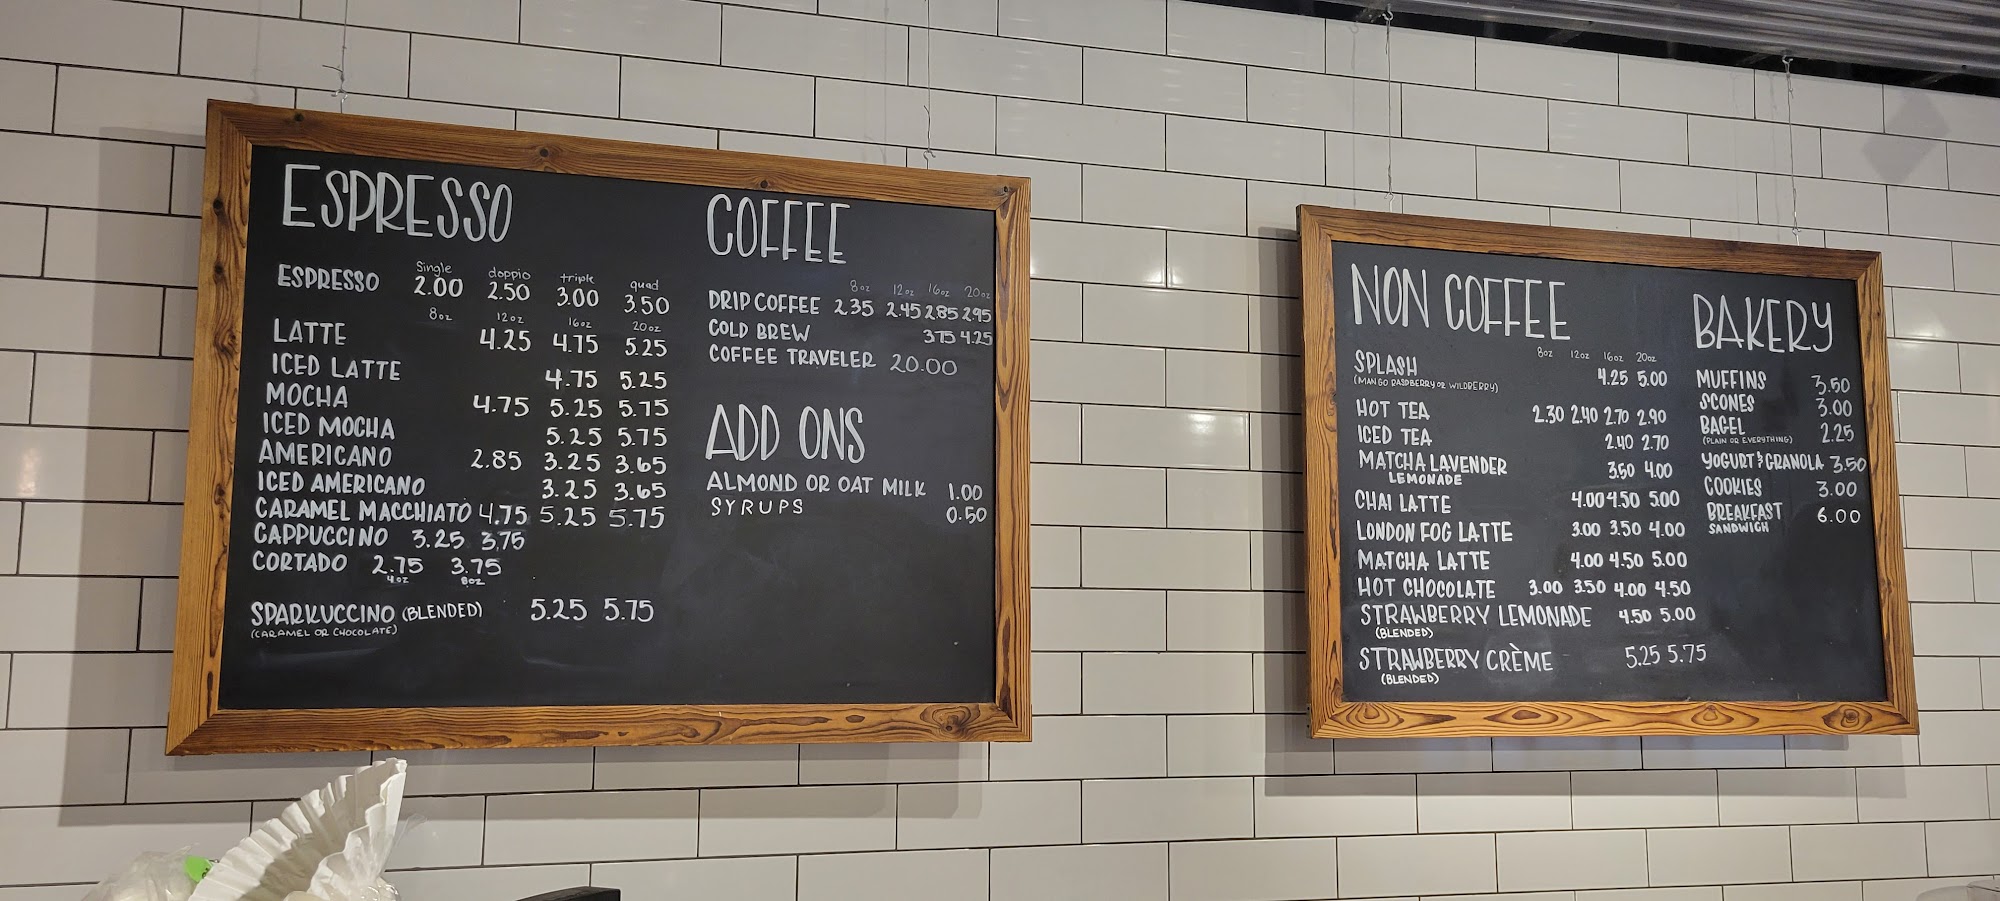 ESPRESSO
Single doppio triple quad
ESPRESSO 2.00 2.50 3.00 3.50
8oz 12oz 16oz 20oz
LATTE 4.25 4.75 5.25
ICED LATTE 4.75 5.25
MOCHA 4.75 5.25 5.75
ICED MOCHA 5.25 5.75
AMERICANO 2.85 3.25 3.65
ICED AMERICANO 3.25 3.65
CARAMEL MACCHIATO 4.75 5.25 5.75
CAPPUCCINO 3.25 3.75
CORTADO 2.75 3.75
4oz 8oz
SPARKUCCINO (BLENDED) 5.25 5.75
(CARAMEL OR CHOCOLATE)
COFFEE
8oz 12oz 16oz 20oz
DRIP COFFEE 2.35 2.45 2.85 2.95
COLD BREW 3.75 4.25
COFFEE TRAVELER 20.00
ADD ONS
ALMOND OR OAT MILK 1.00
SYRUPS 0.50
NON COFFEE
8oz 12oz 16oz 20oz
SPLASH 4.25 5.00
(MANGO RASPBERRY OR WILDBERRY)
HOT TEA 2.30 2.40 2.70 2.90
ICED TEA 2.40 2.70
MATCHA LAVENDER 3.50 4.00
LEMONADE
CHAI LATTE 4.00 4.50 5.00
LONDON FOG LATTE 3.00 3.50 4.00
MATCHA LATTE 4.00 4.50 5.00
HOT CHOCOLATE 3.00 3.50 4.00 4.50
STRAWBERRY LEMONADE 4.50 5.00
(BLENDED)
STRAWBERRY CRÈME 5.25 5.75
(BLENDED)
BAKERY
MUFFINS 3.50
SCONES 3.00
BAGEL 2.25
(PLAIN OR EVERYTHING)
YOGURT & GRANOLA 3.50
COOKIES 3.00
BREAKFAST 6.00
SANDWICH